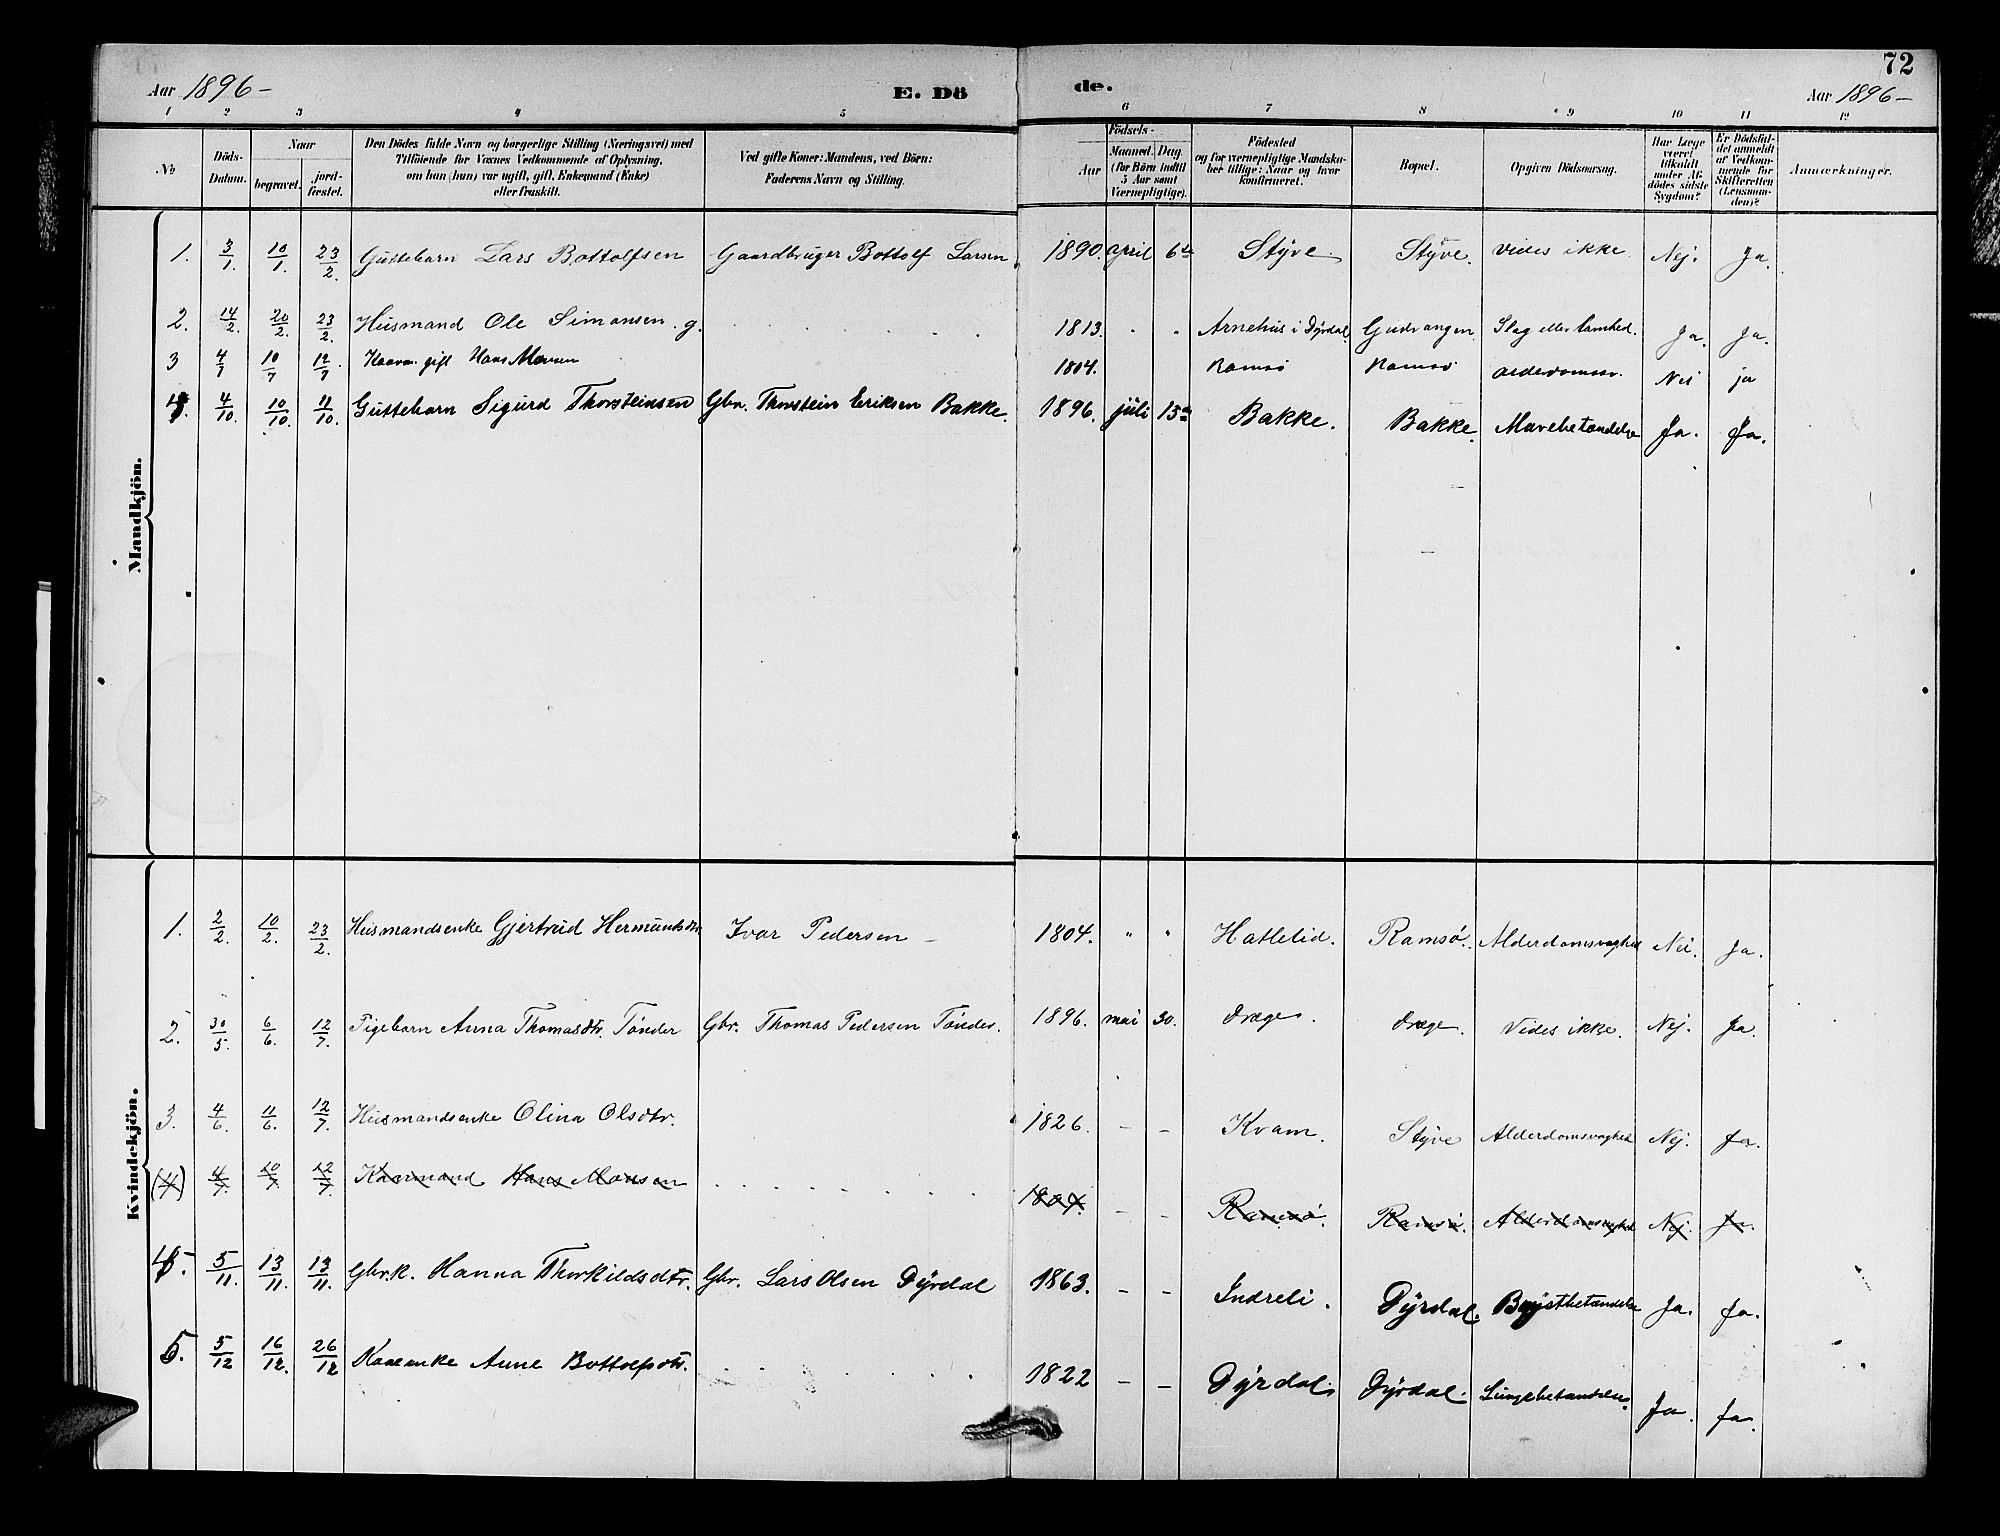 72
Aar 1896- E. Dö de. Aar 1896-
1 2 3 4 5 6 7 8 9 10 11 12
No Döds-Datum. Naar begravet. jordfæstet. Den Dödes fulde Navn og borgerlige Stilling (Næringsvei) med Tilföiende for Voxnes Vedkommende af Oplysning, om han (hun) var ugift, gift, Enkemand (Enke) eller fraskilt. Ved gifte Koner: Mandens, ved Börn: Faderens Navn og Stilling. Födsels- Aar Maaned. Dag (for Börn indtil 5 Aar samt Værnepligtige). Födested og for værnepligtige Mandskaber tillige: Naar og hvor konfirmeret. Bopæl. Opgiven Dödsaarsag. Har Læge været tilkaldt under Afdödes sidste Sygdom? Er Dödsfaldet anmeldt af Vedkommende for Skifteretten (Lensmanden)? Anmærkninger.
Mandkjön.
1. 3/1. 10/1. 23/2. Guttebarn Lars Bottolfsen Gaardbruger Bottolf Larsen 1890. april 6te Styve Styve. Vides ikke. Nej. Ja.
2. 14/2. 20/2. 23/2. Husmand Ole Simonsen. g. 1813. " " Arnehus i Dyrdal Gudvangen. Slag eller lamhed. Ja. Ja.
3 4/7 10/7 12/7 gift Hans Monsen 1804. Ramsø Ramsø Nei ja
4. 4/10. 10/10. 11/10. Guttebarn Sigurd Thorsteinsen Gbr. Thorstein Eriksen Bakke. 1896. juli 13de Bakke. Bakke. Mavebetændelse Ja. Ja.
Kvindekjön.
1. 2/2. 10/2. 23/2. Husmandsenke Gjertrud Hermundsdtr Ivar Pedersen - 1804. " " Hatlelid. Ramsø. Alderdomsvaghed Nei. Ja.
2. 30/5. 6/6. 12/7. Pigebarn Anna Thomasdtr. Tønder Gbr. Thomas Pedersen Tønder. 1896. mai 30. Drægs. Dræge. Vides ikke. Nej. Ja.
3. 4/6. 11/6. 12/7. Husmandsenke Olina Olsdtr. 1826. - - Kvam. Styve Alderdomsvaghed Nej. Ja.
(4) 4/7. 10/7. 12/7. Kaarmand Hans Monsen 1804. - - Ramsø. Ramsø. Alderdomsvaghed Nej. Ja.
4. 5/11. 13/11. 13/11. Gbr.k. Hanna Thorkildsdtr. Gbr. Lars Olsen Dyrdal 1863. - - Indreli. Dyrdal. Brystbetændelse Ja. Ja.
5. 5/12 16/12. 26/12 Kaarenke Anne Bottolfsdtr. 1822 - - Dyrdal. Dyrdal. Lungebetændelse. Ja. Ja.